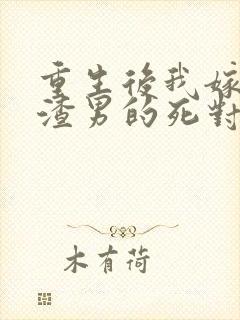 重生後我嫁
渣男的死對
木有荷